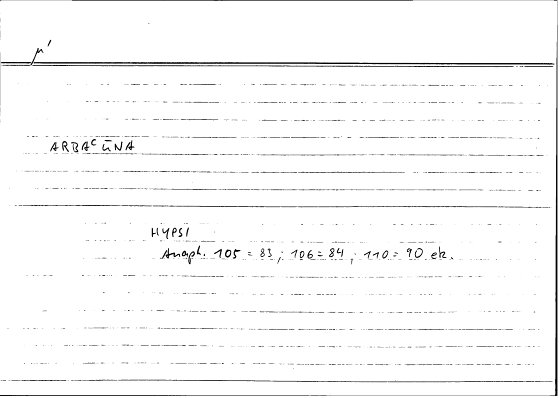 μ'
ARBAᶜ ŪNA
HYPSI
Anaph. 105 = 83 ; 106 = 84 ; 110 = 90 ek.